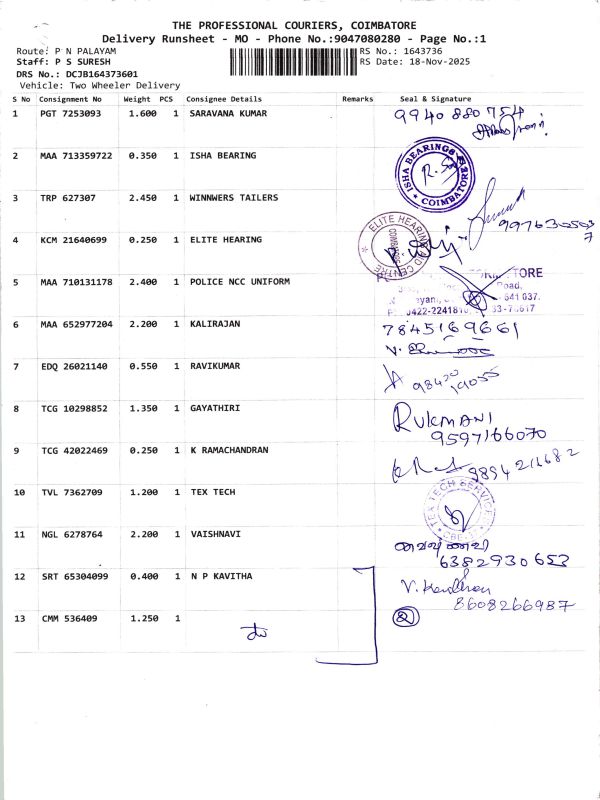 THE PROFESSIONAL COURIERS, COIMBATORE
Delivery Runsheet - MO - Phone No.:9047080280 - Page No.:1
Route: P N PALAYAM
RS No.: 1643736
Staff: P S SURESH
RS Date: 18-Nov-2025
DRS No.: DCJB164373601
Vehicle: Two Wheeler Delivery
S No Consignment No Weight PCS Consignee Details Remarks Seal & Signature
1 PGT 7253093 1.600 1 SARAVANA KUMAR 9940 880 754
2 MAA 713359722 0.350 1 ISHA BEARING ISHA BEARINGS COIMBATORE
3 TRP 627307 2.450 1 WINNWERS TAILERS
4 KCM 21640699 0.250 1 ELITE HEARING ELITE HEARING AID CENTRE
5 MAA 710131178 2.400 1 POLICE NCC UNIFORM STORE
Road,
641 037.
6 MAA 652977204 2.200 1 KALIRAJAN 7845169661
7 EDQ 26021140 0.550 1 RAVIKUMAR 98420 19055
8 TCG 10298852 1.350 1 GAYATHIRI RUKMANI
9597166070
9 TCG 42022469 0.250 1 K RAMACHANDRAN
10 TVL 7362709 1.200 1 TEX TECH TEX TECH SERVICE
11 NGL 6278764 2.200 1 VAISHNAVI வைஷ்ணவி
6382930653
12 SRT 65304099 0.400 1 N P KAVITHA
8608266987
13 CMM 536409 1.250 1